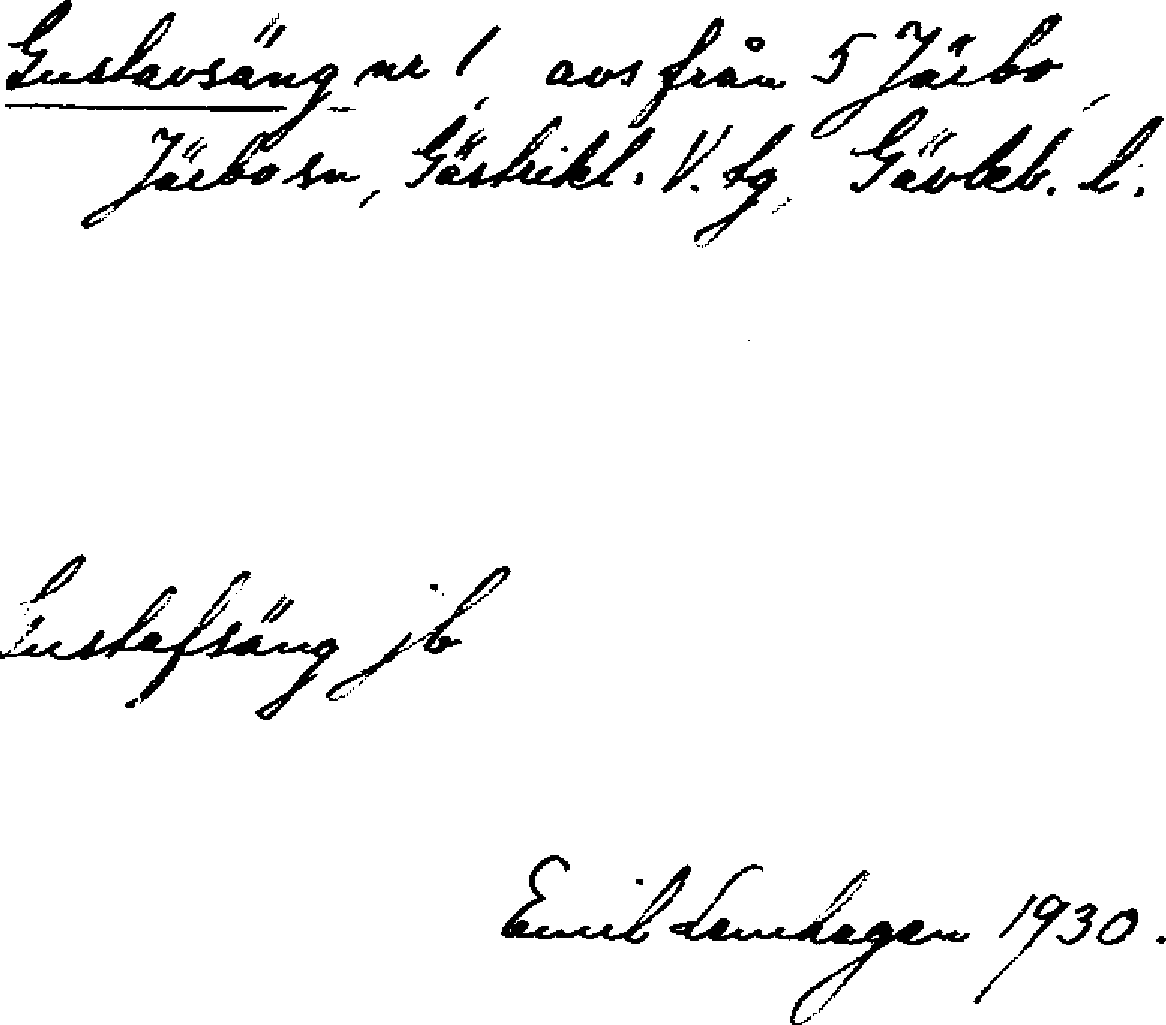 Gustavsäng nr 1, avs från 5 Järbo,
Järbo sn, Gästrikl. V. tg, Gävleb. l.
Gustafsäng jb
Emil 1930.